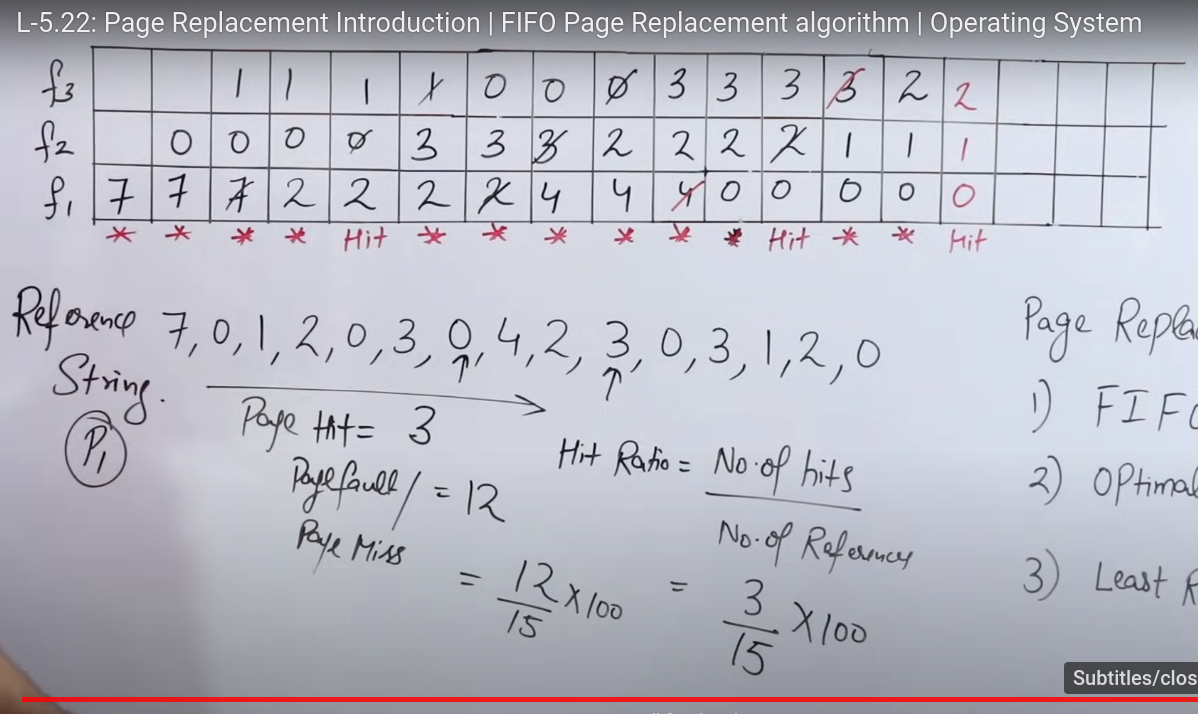 L-5.22: Page Replacement Introduction | FIFO Page Replacement algorithm | Operating System
f3 1 1 1 1 0 0 0 3 3 3 3 2 2
f2 0 0 0 0 3 3 3 2 2 2 2 1 1 1
f1 7 7 7 2 2 2 2 4 4 4 0 0 0 0 0
* * * * Hit * * * * * * Hit * * Hit
Reference 7, 0, 1, 2, 0, 3, 0, 4, 2, 3, 0, 3, 1, 2, 0
↑ ↑
String.
P1
Page Hit = 3
Page fault / = 12
Page Miss
= 12/15 X 100
Hit Ratio = No. of hits
No. of Reference
= 3/15 X 100
Page Repla
1) FIFO
2) OPtimal
3) Least R
Subtitles/clos